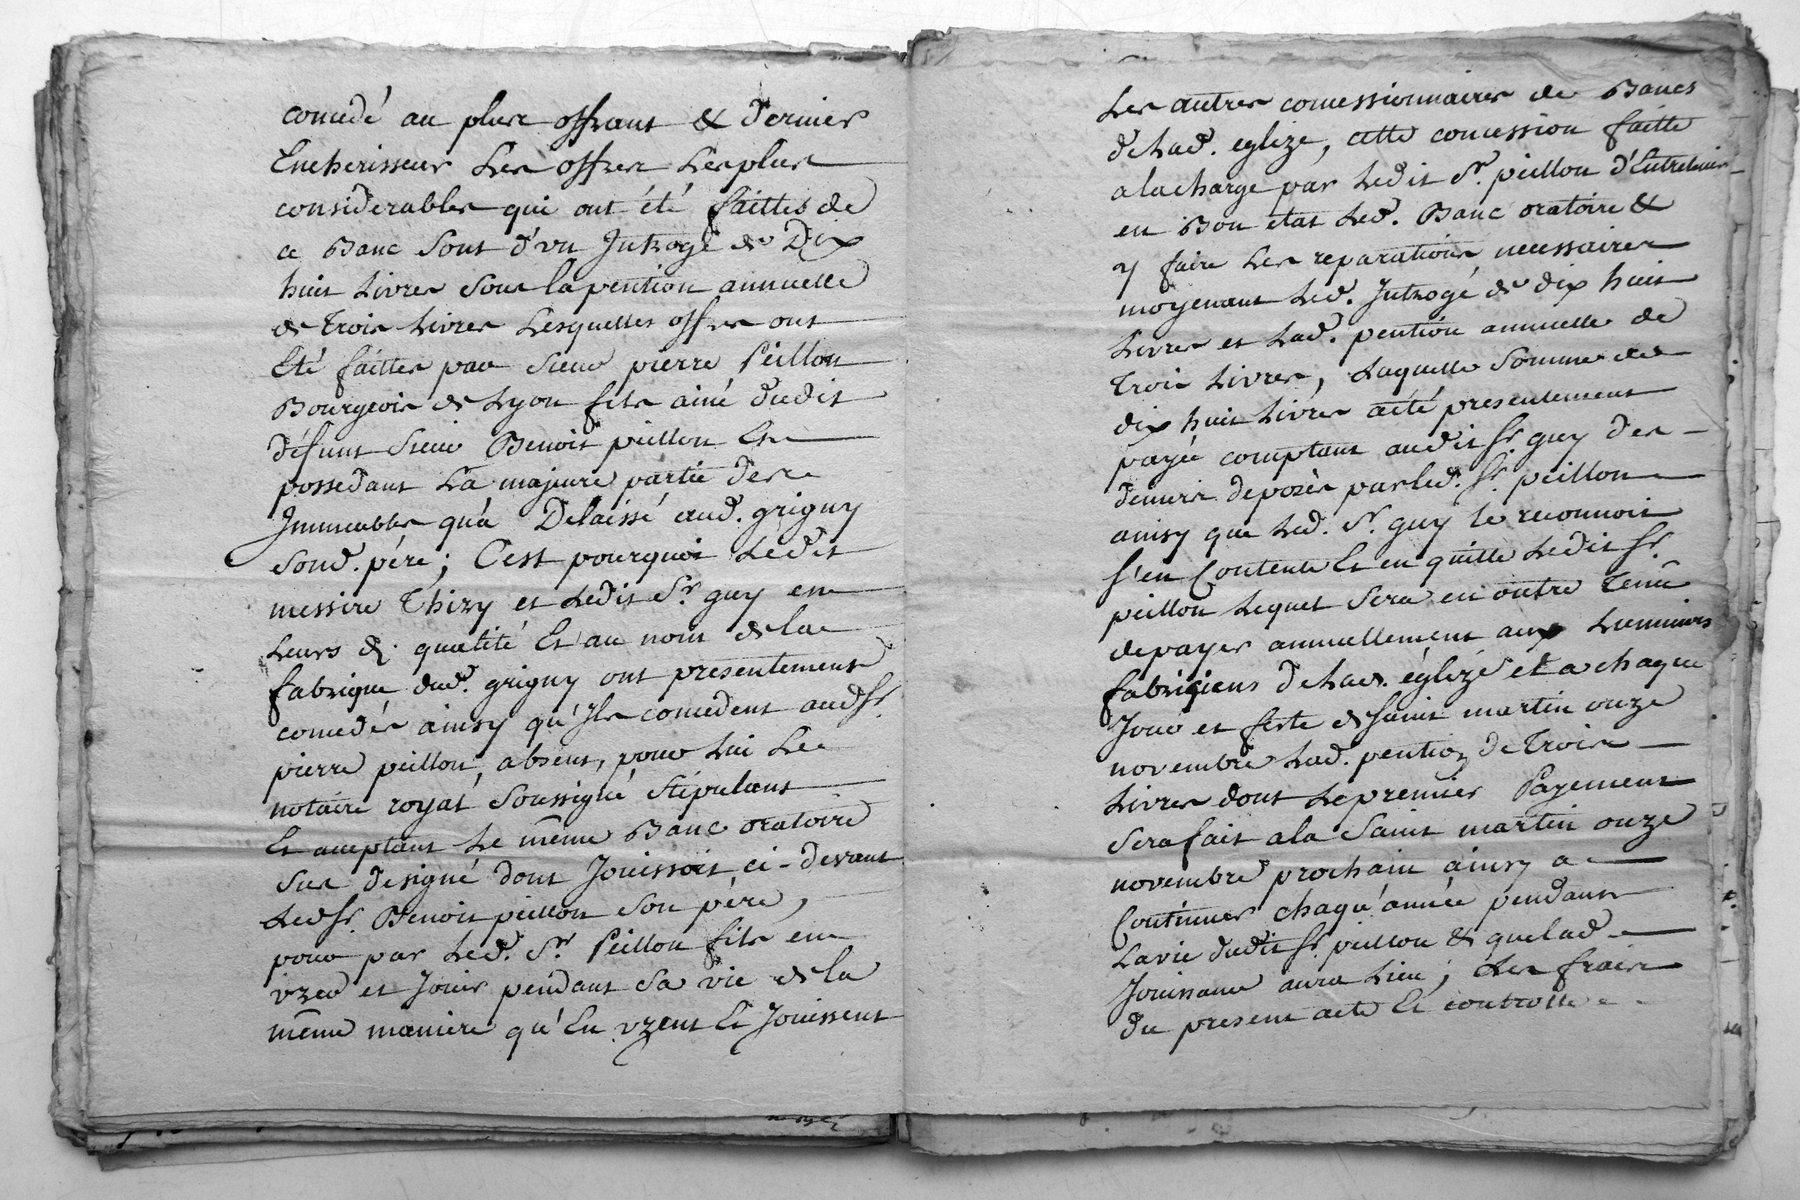 concedé au plus offrant & dernier
Encherisseur Les offres Les plus
considerables qui ont été faittes de
ce Banc sont d'vn Jntrogé de Dix
huit Livres sous la pention annuelle
de Trois Livres Lesquelles offres ont
Eté faittes par sieur pierre Peillon
Bourgeois de Lyon fils ainé dudit
défunt sieur Benoit peillon Et
possedant La majeure partie des
Jmmeubles qu'a Delaissé aud. grigny
sond. pére; C'est pourquoi Ledit
messire Thizy et Ledit Sr. guy en
Leurs d. qualité Et au nom de la
fabrique dud. grigny ont presentement
concedés ainsy qu'Jls concedent aud. Sr.
pierre peillon, absent, pour Lui Le
notaire royal soussigné stipulant
Et acceptant Le même Banc oratoire
sus designé dont Jouissoit ci-devant
Led. Sr. Benoit peillon son pére,
pour par Led. Sr. Peillon fils en
vzer et Jouir pendant sa vie de la
même maniere qu'En vzent Et Jouissent
Les autres concessionnaires de Bancs
de Lad. eglize, cette concession faitte
a la charge par Ledit Sr. peillon d'Entretenir
en Bon etat Led. Banc oratoire &
y faire Les reparations necessaires
moyenant Led. Jntrogé de dix huit
Livres et Lad. pention annuelle de
Trois Livres, Laquelle somme de
dix huit Livres a été presentement
payée comptant audit Sr. guy des
deniers deposés par Led. Sr. peillon
ainsy que Led. Sr. guy le reconnoit
s'en Contente Et en quitte Ledit Sr.
peillon Lequel sera en outre Tenu
de payer annuellement aux Luminiers
fabriciens de Lad. églize et a chaque
Jour et feste de saint martin onze
novembre Lad. pention de Trois
Livres dont Le premier Payement
sera fait a la saint martin onze
novembre prochain ainsy a
Continuer chaqu'année pendant
La vie dudit Sr. peillon & que lad.
Jouissance aura Lieu; Les frais
du present acte Et controlle